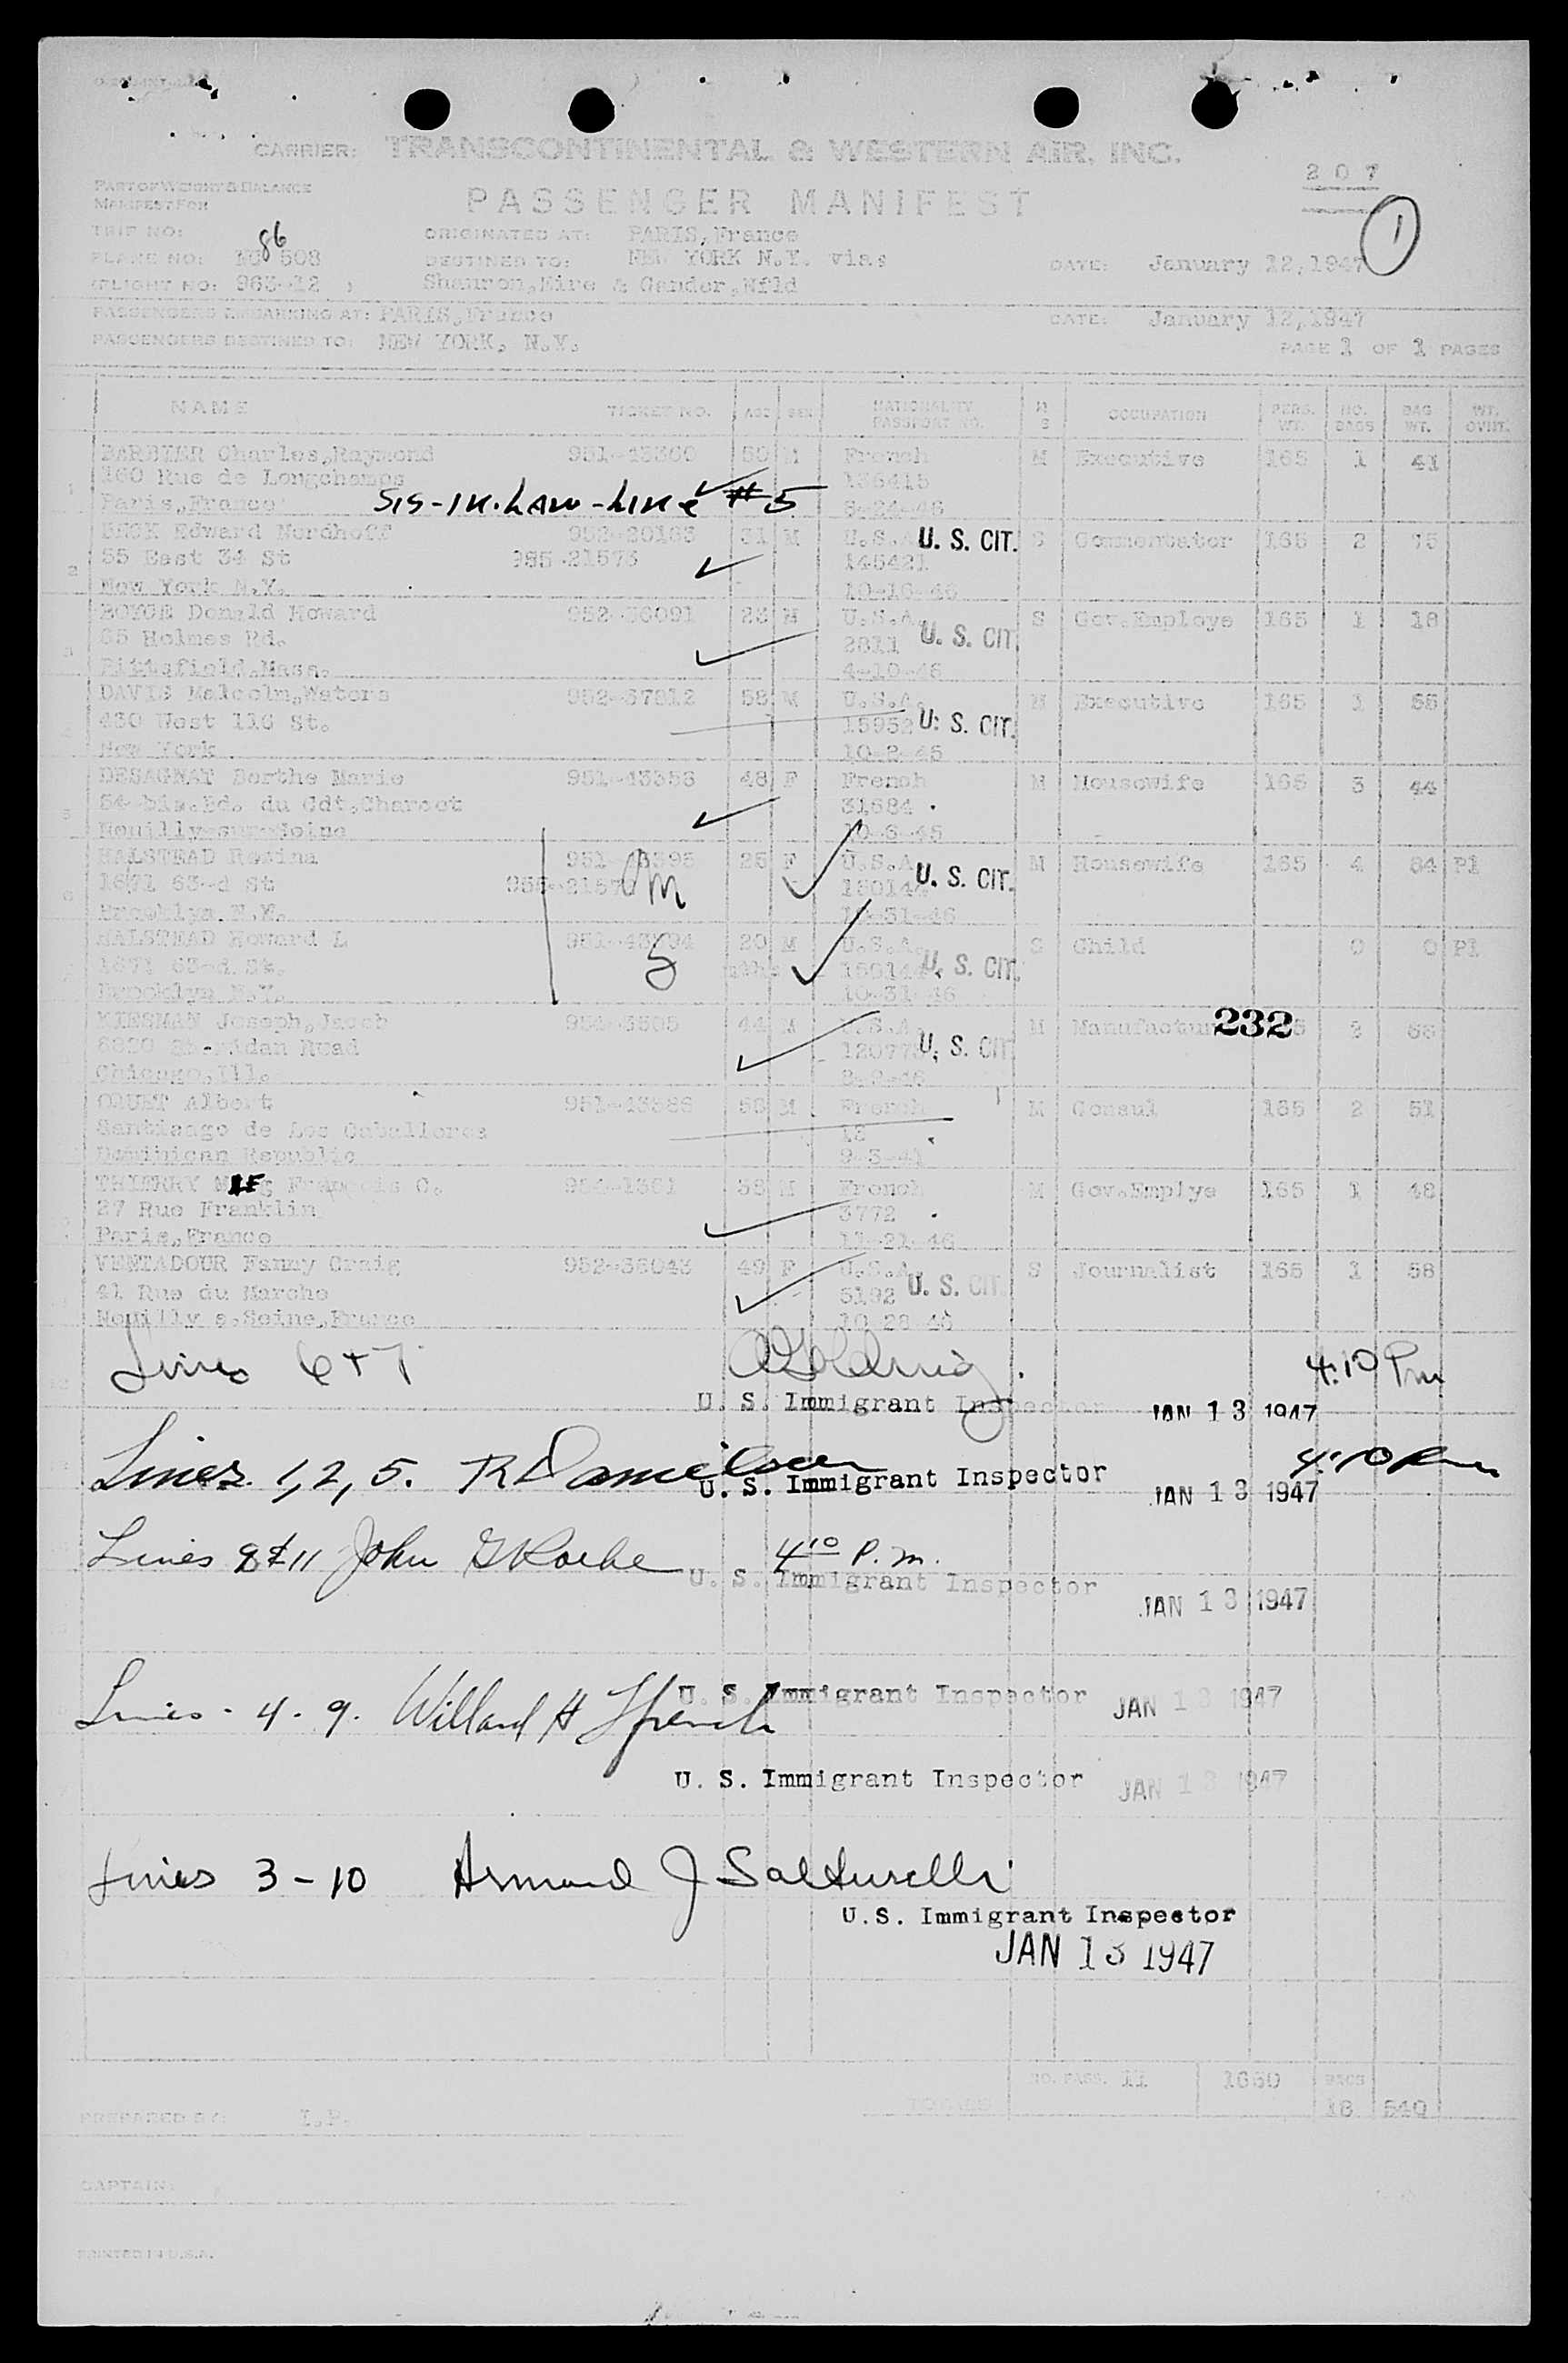 CARRIER: TRANSCONTINENTAL & WESTERN AIR, INC.
207
PART OF WEIGHT & BALANCE
MANIFEST FOR
PASSENGER MANIFEST
1
TRIP NO:
86
ORIGINATED AT: PARIS, France
PLANE NO: 508
DESTINED TO: NEW YORK N.Y. vias
DATE: January 12, 1947
FLIGHT NO: 963-12
Shannon, Eire & Gander, Nfld
PASSENGERS EMBARKING AT: PARIS, France
DATE: January 12, 1947
PASSENGERS DESTINED TO: NEW YORK, N.Y.
PAGE 1 OF 1 PAGES
NAME TICKET NO. AGE SEX NATIONALITY PASSPORT NO. M S OCCUPATION PERS. WT. NO. BAGS BAG WT. WT. OVHT.
BARBIER Charles, Raymond 951-43360 50 M French M Executive 165 1 41
160 Rue de Longchamps 136415
1 Paris, France SIS-IN-LAW-LINE #5 8-24-46
BECK Edward Nordhoff 952-20193 31 M U.S.A. U. S. CIT. S Commentator 165 2 75
55 East 34 St 985-21573 145421
2 New York N.Y. 10-16-46
Donald Howard 952-36091 23 M U.S.A. U. S. CIT. S Gov.Employe 165 1 18
85 Holmes Rd. 2811
3 Pittsfield, Mass. 4-10-46
DAVIS Malcolm, Waters 952-37912 58 M U.S.A. U. S. CIT. M Executive 165 1 55
430 West 116 St. 15952
New York 10-2-45
DESAGNAT Berthe Marie 951-43358 48 F French M Housewife 165 3 44
54 bis. Bd. du Cdt. Charcot 31684
5 Neuilly sur Seine 10-6-45
HALSTEAD Regina 951-43395 25 F U.S.A. U. S. CIT. M Housewife 165 4 84 Pl
1671 63-d St m
6 Brooklyn N.Y. 10-31-46
HALSTEAD Howard L 951-43394 20 M U.S.A. U. S. CIT. S Child 0 0 Pl
1671 63-d St. S mths
Brooklyn N.Y. 10-31-46
KIESMAN Joseph, Jacob 44 M U.S.A. U. S. CIT. M 232
Sheridan Road
Chicago, Ill. 8-9-46
OQUET Albert 951-43386 58 M French M Consul 165 2 51
Santisago de Los Caballeros 12
Dominican Republic 9-3-41
THIERRY François C. 38 M French M Gov.Emplye 165 1 48
27 Rue Franklin 3772
Paris, France 11-21-46
VENTADOUR Fanny Craig 952-36043 49 F U.S.A. U. S. CIT. S Journalist 165 1 58
41 Rue du Marche 5192
Neuilly s. Seine, France
Lines 6 + 7 4:10 Pm
U. S. Immigrant Inspector JAN 13 1947
Lines 1, 2, 5. R Danielson 4:10 Pm
U. S. Immigrant Inspector JAN 13 1947
Lines 8 & 11 John G Roche 4 10 P.m.
U. S. Immigrant Inspector JAN 13 1947
U. S. Immigrant Inspector JAN 13 1947
Lines - 4 - 9. Willard H French
U. S. Immigrant Inspector JAN 13 1947
Lines 3 - 10 Armand J Salturelli
U.S. Immigrant Inspector
JAN 13 1947
NO. PASS. 11 1650 BAGS
PREPARED BY: TOTALS 18 540
CAPTAIN:
PRINTED IN U.S.A.